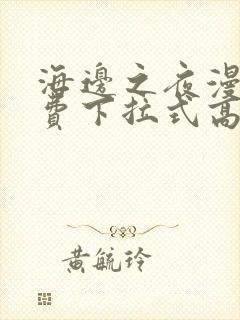 海邊之夜漫
費下拉式高
黃毓玲